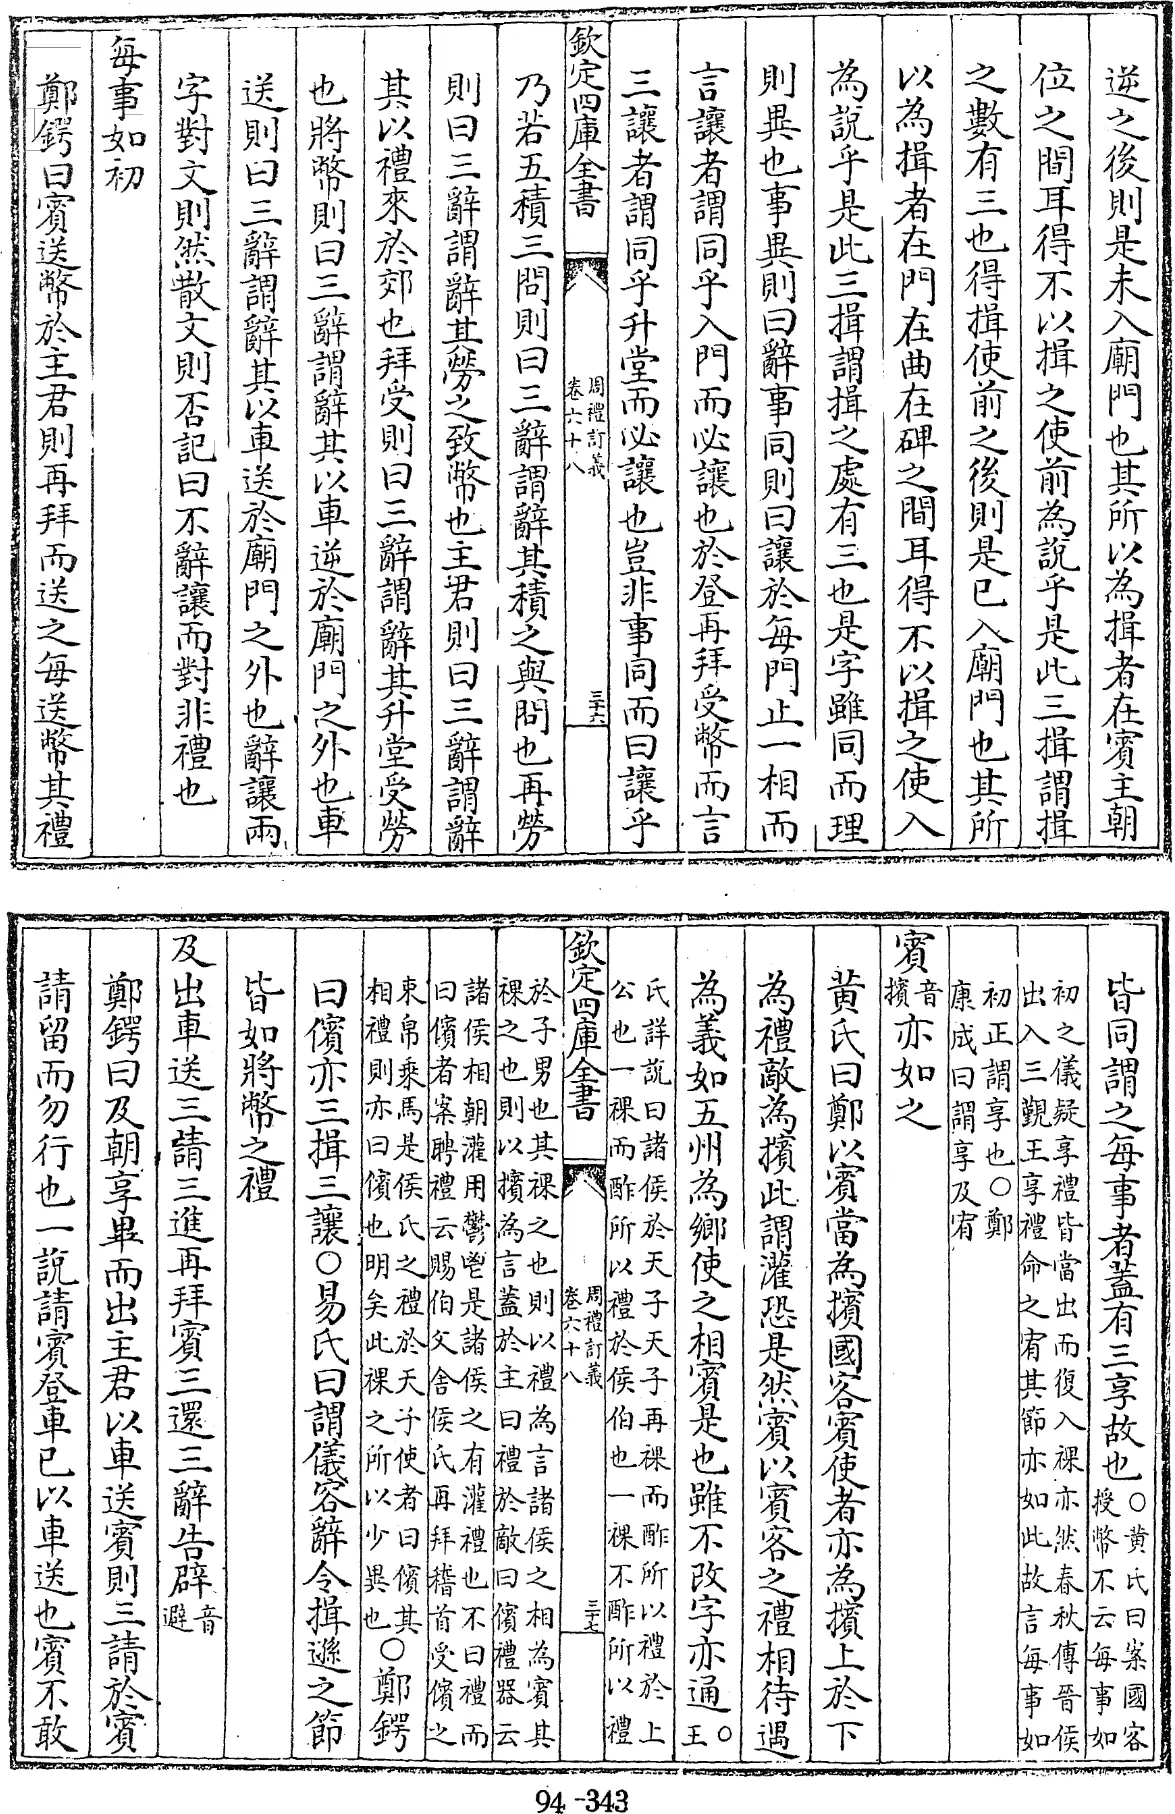 逆之後則是未入廟門也其所以為揖者在賓主朝
位之間耳得不以揖之使前為說乎是此三揖謂揖
之數有三也得揖使前之後則是已入廟門也其所
以為揖者在門在曲在碑之間耳得不以揖之使入
為說乎是此三揖謂揖之處有三也是字雖同而理
則異也事異則曰辭事同則曰讓於每門止一相而
言讓者謂同乎入門而必讓也於登再拜受幣而言
三讓者謂同乎升堂而必讓也豈非事同而曰讓乎
欽定四庫全書
周禮訂義
卷六十八
三十六
乃若五積三問則曰三辭謂辭其積之與問也再勞
則曰三辭謂辭其勞之致幣也主君則曰三辭謂辭
其以禮來於郊也拜受則曰三辭謂辭其升堂受勞
也將幣則曰三辭謂辭其以車逆於廟門之外也車
送則曰三辭謂辭其以車送於廟門之外也辭讓兩
字對文則然散文則否記曰不辭讓而對非禮也
每事如初
鄭鍔曰賓送幣於主君則再拜而送之每送幣其禮
皆同謂之每事者蓋有三享故也○黃氏曰案國客
授幣不云每事如
初之儀疑享禮皆當出而復入祼亦然春秋傳晉侯
出入三覲王享禮命之宥其節亦如此故言每事如
初正謂享也○鄭
康成曰謂享及宥
賓音
擯亦如之
黃氏曰鄭以賓當為擯國客賓使者亦為擯上於下
為禮敵為擯此謂灌恐是然賓以賓客之禮相待遇
為義如五州為鄉使之相賓是也雖不改字亦通○
王
氏詳說曰諸侯於天子天子再祼而酢所以禮於上
公也一祼而酢所以禮於侯伯也一祼不酢所以禮
欽定四庫全書
周禮訂義
卷六十八
三十七
於子男也其祼之也則以禮為言諸侯之相為賓其
祼之也則以擯為言蓋於主曰禮於敵曰儐禮器云
諸侯相朝灌用鬱鬯是諸侯之有灌禮也不曰禮而
曰儐者案聘禮云賜伯父舍侯氏再拜稽首受儐之
束帛乘馬是侯氏之禮於天子使者曰儐其
相禮則亦曰儐也明矣此祼之所以少異也○鄭鍔
曰儐亦三揖三讓○易氏曰謂儀容辭令揖遜之節
皆如將幣之禮
及出車送三請三進再拜賓三還三辭告辟音
避
鄭鍔曰及朝享畢而出主君以車送賓則三請於賓
請留而勿行也一說請賓登車已以車送也賓不敢
94-343